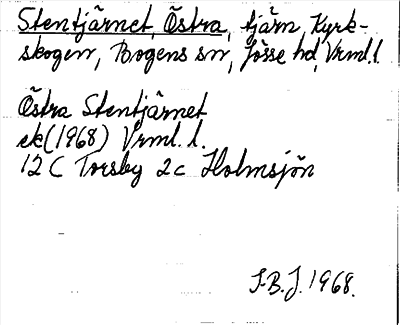 Stentjärnet, Östra, tjärn, Kyrk-
skogen, Bogens sn, Jösse hd, Vrml. l.
Östra Stentjärnet
ek (1968) Vrml. l.
12 C Torsby 2 c Holmsjön
F.B.J. 1968.